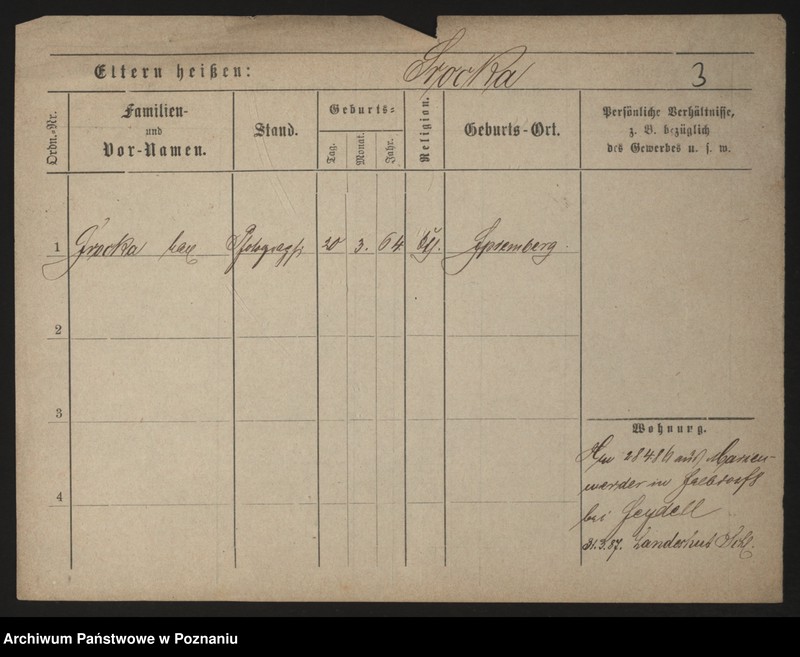 Eltern heißen: Grocka 3
Ordn.-Nr.
Familien-
und
Vor-Namen.
Stand.
Geburts-
Tag.
Monat.
Jahr.
Religion.
Geburts-Ort.
Persönliche Verhältnisse,
z. B. bezüglich
des Gewerbes u. s. w.
1 Grocka Photograph 20 3. 64 Spremberg.
2
3
4
Wohnung.
28 4 86 aus Marien-
werder in
bei Seydell
31.3.87. Landeshut Schl.
Archiwum Państwowe w Poznaniu